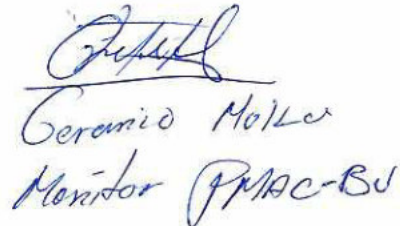 Geranio Molla
Monitor PMAC-BU